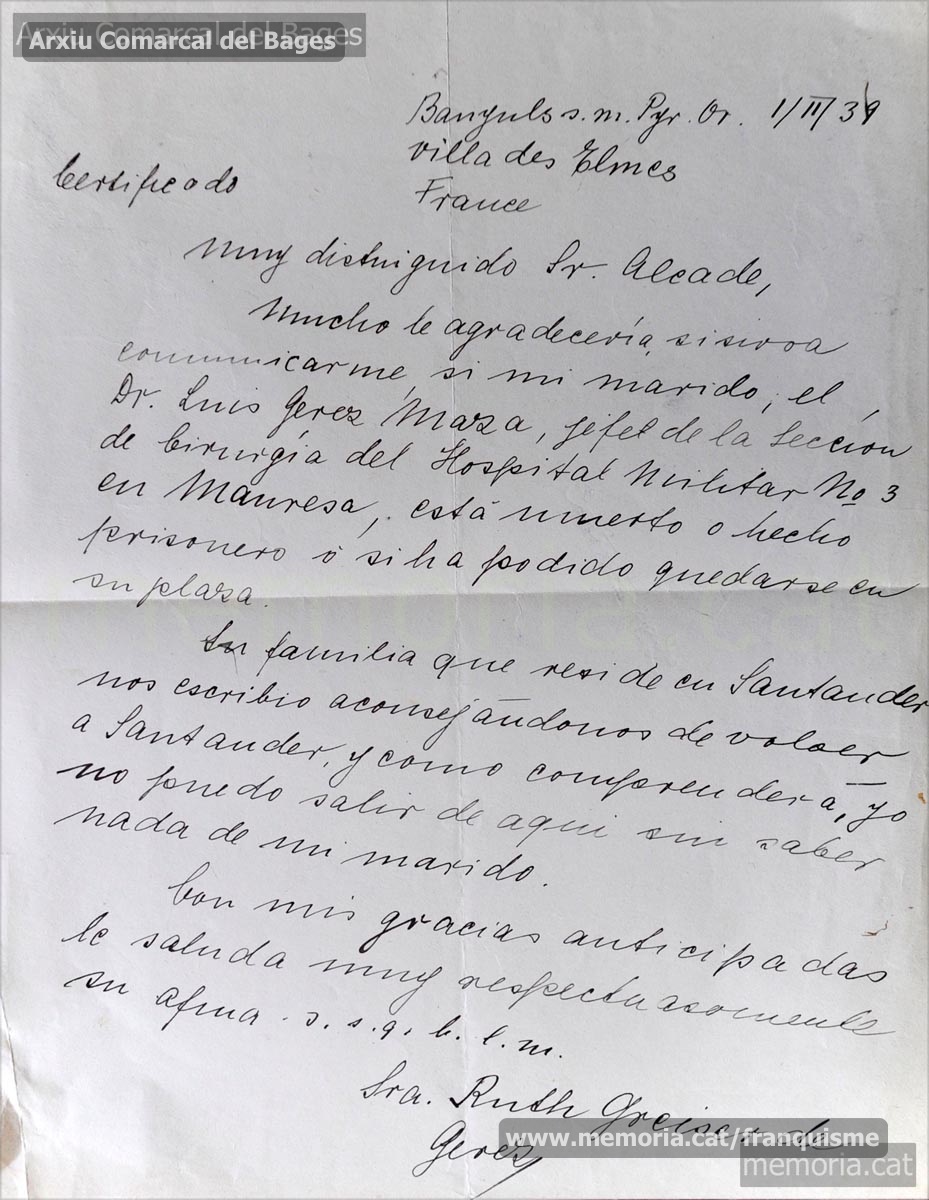 Arxiu Comarcal del Bages
Arxiu Comarcal del Bages
Banyuls s. m. Pyr. Or. 1/II/39
Villa des Elmes
France
Certificado
Muy distinguido Sr. Alcade,
Mucho le agradecería, si sirva
comunicarme, si mi marido, el
Dr. Luis Gerez Maza, jefel de la Sección
de Cirurgía del Hospital Militar No 3
en Manresa, está muerto o hecho
prisonero o si ha podido quedarse en
su plaza.
Su familia que reside en Santander
nos escribio aconsejándonos de volver
a Santander, y como comprenderá, yo
no puedo salir de aqui sin saber
nada de mi marido.
Con mis gracias anticipadas
le saluda muy respectuasomente
su afma. s. s. q. b. l. m.
Sra. Ruth de
Gerez
www.memoria.cat/franquisme
memoria.cat